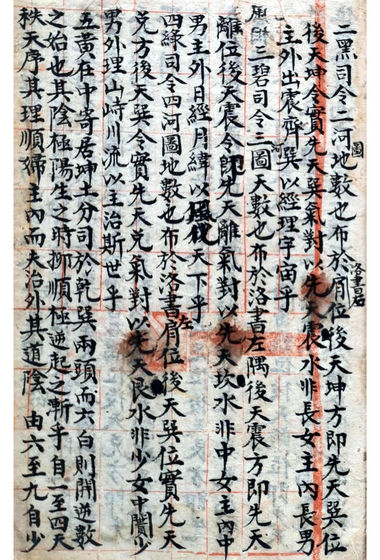 二黑司令二河圖地數也布於洛書右肩位後天坤方即先天巽位
後天坤令實先天巽氣對以先天震水非長女主內長男
主外出震齊巽以經理宇宙乎
三碧司令三河圖天數也布於洛書左隅後天震方即先天
離位後天震令即先天離氣對以先天坎水非中女主內中
男主外日經月緯以天下乎
四綠司令四河圖地數也布於洛書左肩位後天巽位實先天
兌方後天巽令實先天兌氣對以先天艮水非少女中闈少
男外理山峙川流以主治斯世乎
五黃在中寄居坤土分司於乾巽兩頭而六白則開逆數
之始也其陰極陽生之時抑順極逆起之漸乎自一至四天
秩天序其理順婦主內而天治外其道陰 由六至九自少